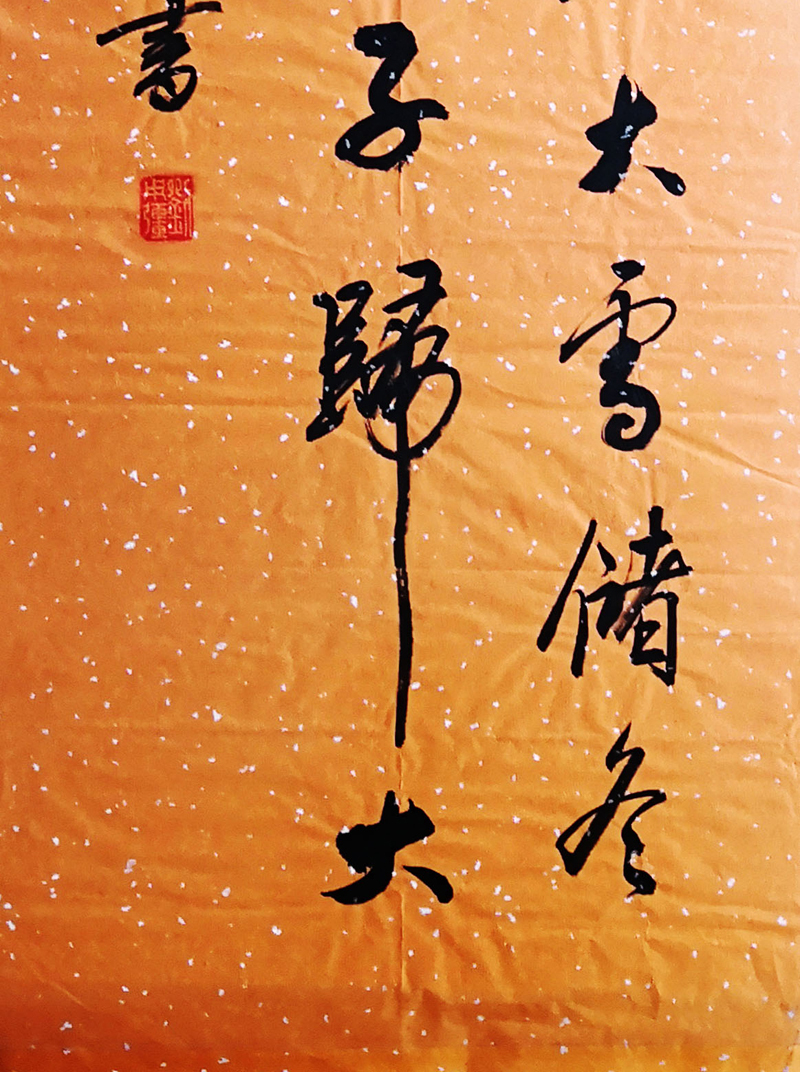 大雪储冬
子歸大
書